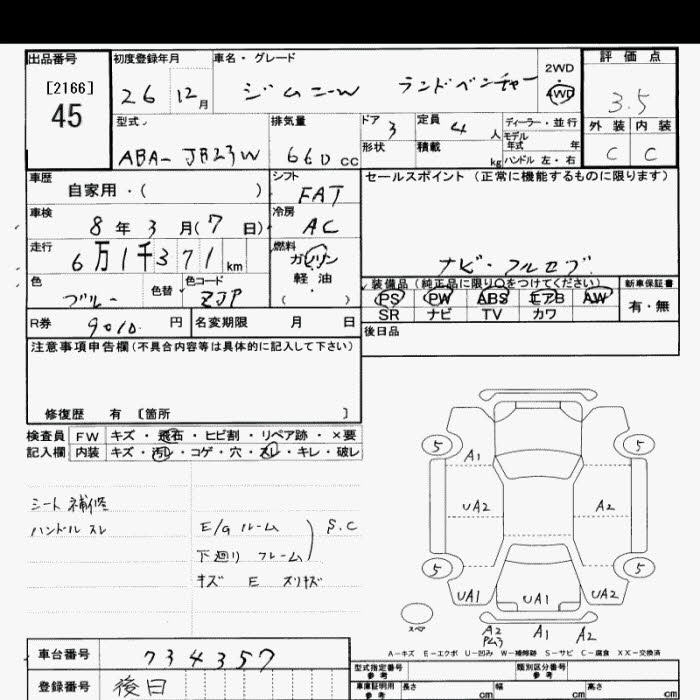 出品番号 初度登録年月 車名・グレード 2WD 評価点
[2166] 45 26 12月 ジムニーW ランドベンチャー 4WD 3.5
型式 排気量 ドア 3 定員 4人 ディーラー・並行 外装 内装
ABA-JB23W 660cc 形状 積載 kg モデル年式 年 ハンドル 左・右 C C
車歴 自家用・( ) シフト FAT セールスポイント(正常に機能するものに限ります)
車検 8年3月(7日) 冷房 AC
走行 6万1千371km 燃料 ガソリン 軽油 ・( ) ナビ・フルセグ
色 ブルー 色替 色コード ZJP 装備品(純正品に限り○をつけてください) 新車保証書
PS PW ABS エアB AW 有・無
SR ナビ TV カワ
R券 9010. 円 名変期限 月 日 後日品
注意事項申告欄(不具合内容等は具体的に記入して下さい)
修復歴 有 〔箇所 〕
検査員 FW キズ・飛石・ヒビ割・リペア跡・×要
記入欄 内装 キズ・汚レ・コゲ・穴・スレ・キレ・破レ
シート補修
ハンドルスレ E/Gルーム S.C
下廻り フレーム
キズ E スリキズ
5 5
A1
UA2 A2
5 5
UA1 UA1 UA2
スペア A2 A1 A2
A-キズ E-エクボ U-凹み W-補修跡 S-サビ C-腐食 XX-交換済
車台番号 734357 型式指定番号 参考 類別区分番号 参考
登録番号 後日 車庫証明用 参考 長さ cm 幅 cm 高さ cm